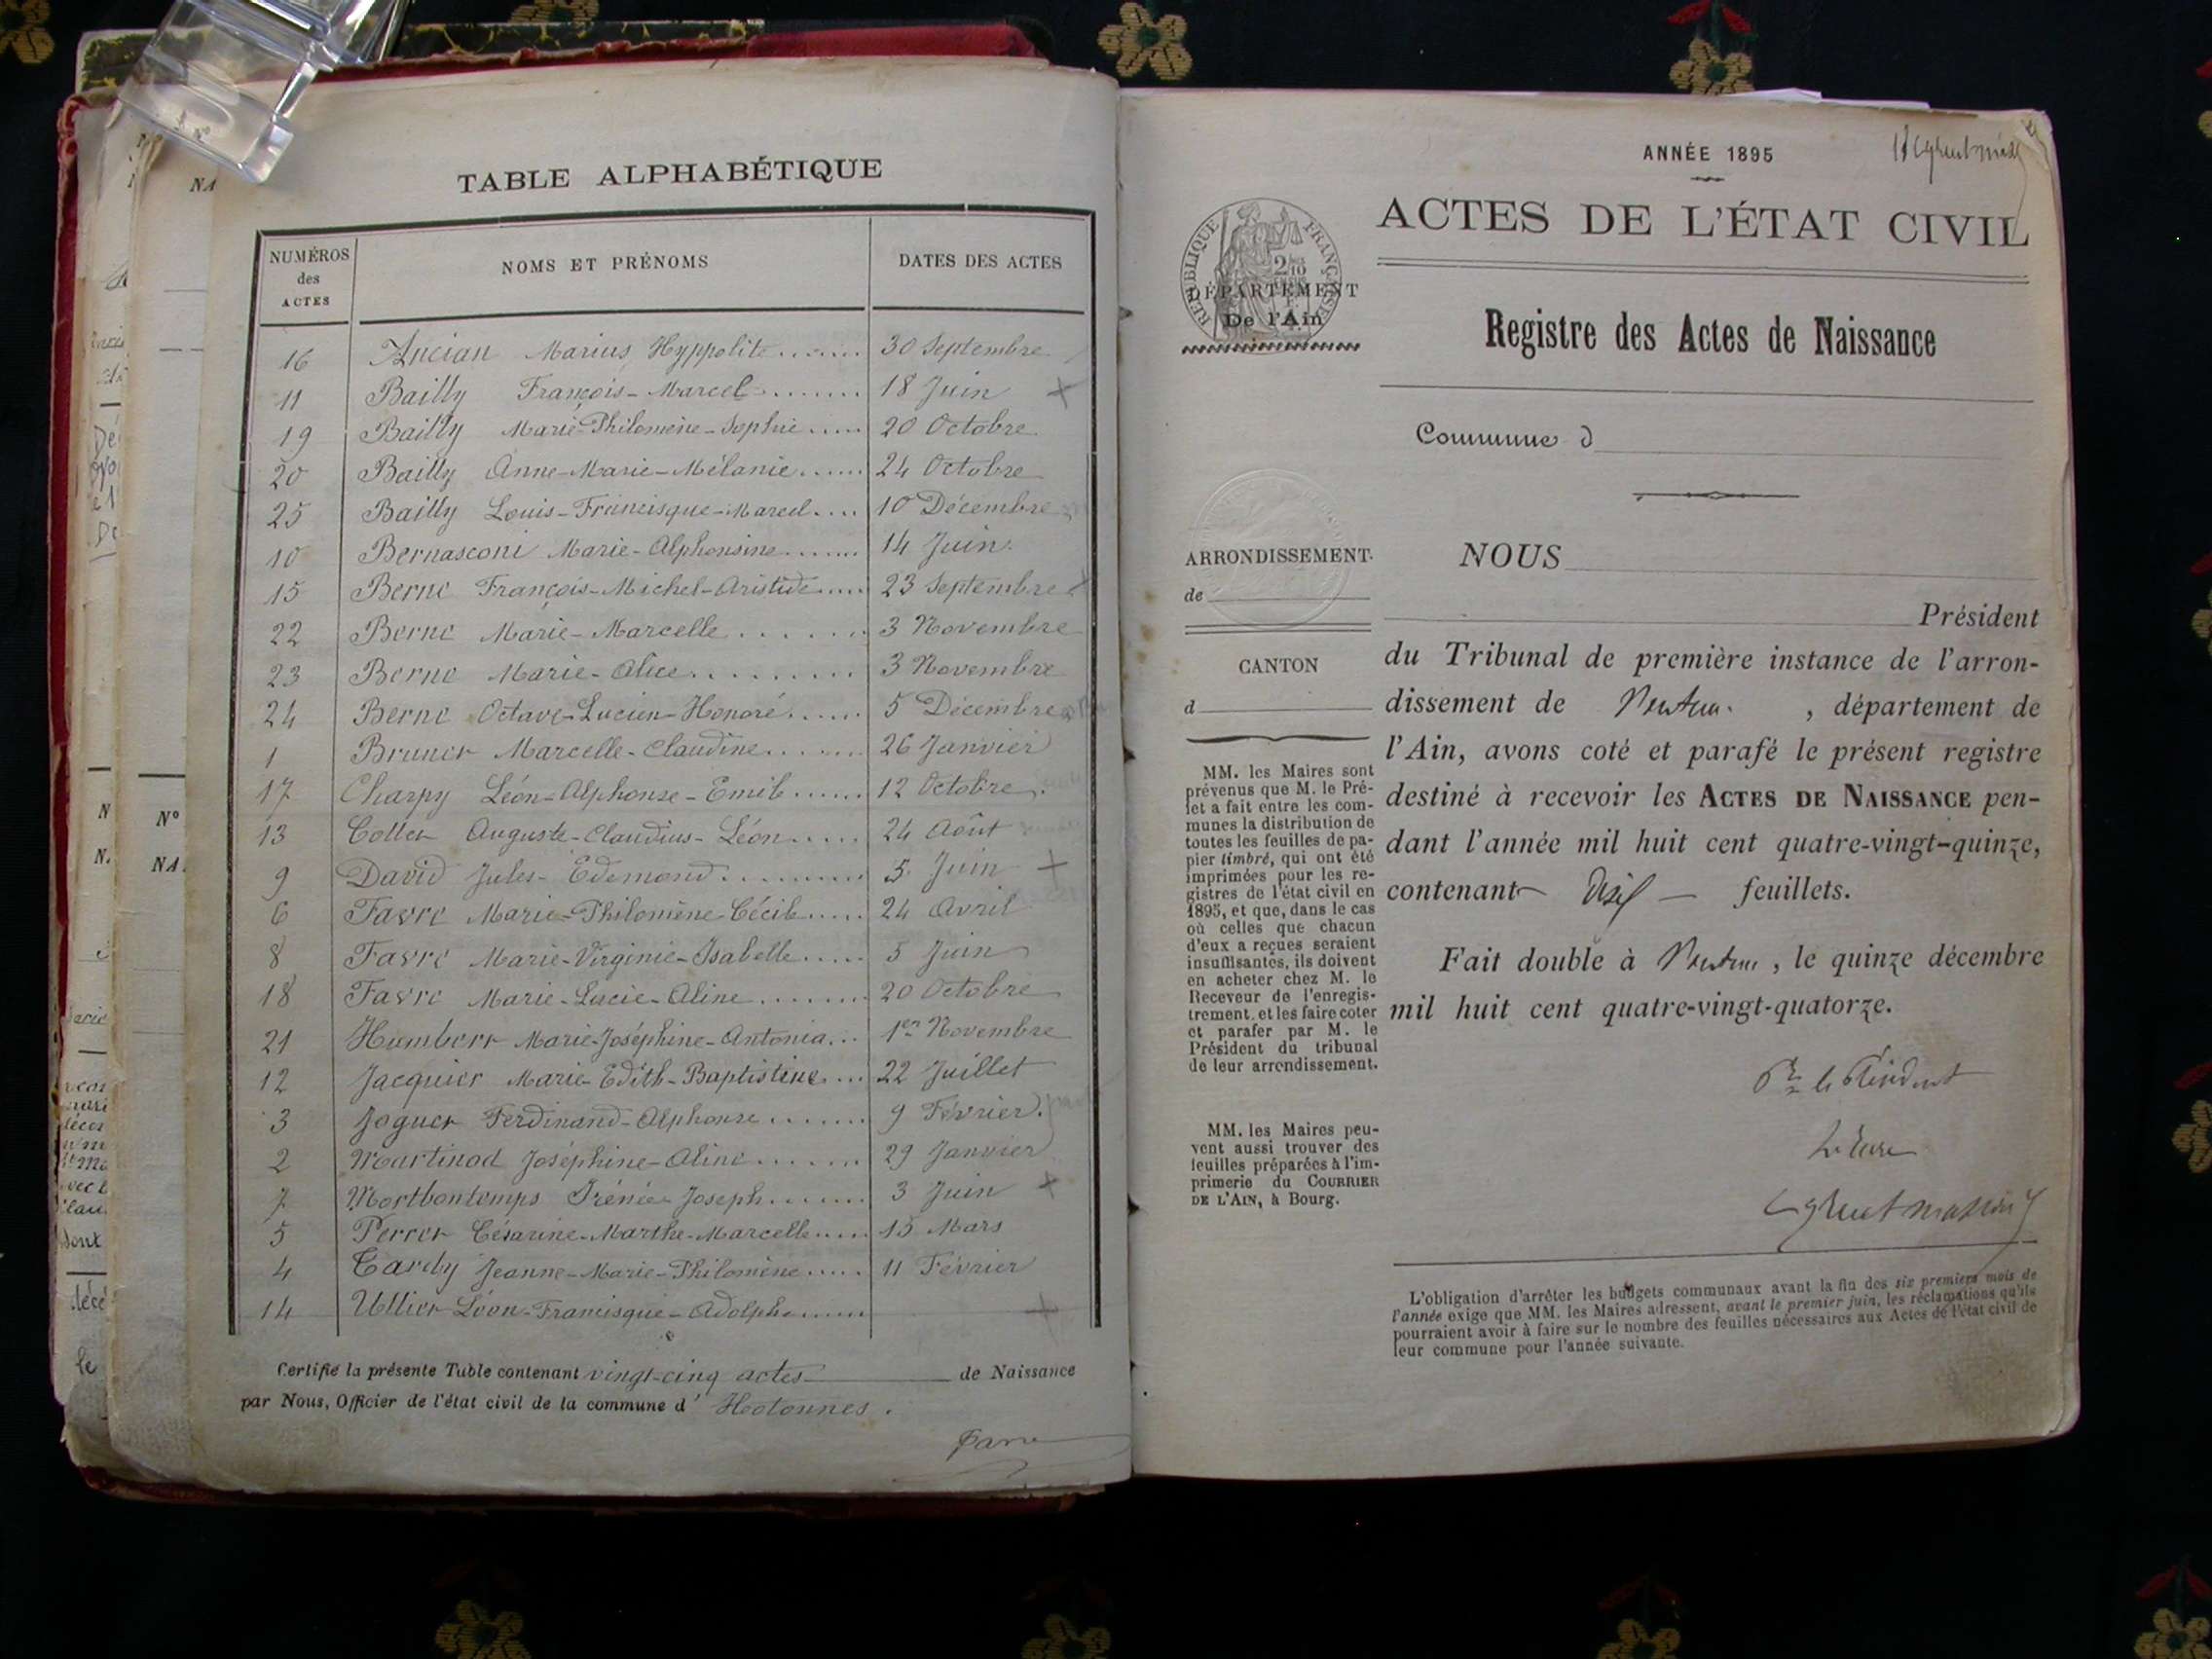 TABLE ALPHABÉTIQUE
NUMÉROS des ACTES
NOMS ET PRÉNOMS
DATES DES ACTES
16 Ancian Marius Hyppolite ...... 30 Septembre
11 Bailly François-Marcel ....... 18 Juin +
19 Bailly Marie-Philomène-Sophie ..... 20 Octobre
20 Bailly Anne-Marie-Mélanie ...... 24 Octobre
25 Bailly Louis-Francisque-Marcel .... 10 Décembre
10 Bernasconi Marie-Alphonsine ....... 14 Juin.
15 Berne François-Michel-Aristide .... 23 Septembre
22 Berne Marie-Marcelle ....... 3 Novembre
23 Berne Marie-Alice ......... 3 Novembre
24 Berne Octave-Lucien-Honoré ...... 5 Décembre
1 Brunet Marcelle-Claudine ....... 26 Janvier
17 Charpy Léon-Alphonse-Emile ...... 12 Octobre.
13 Collet Auguste-Claudius-Léon ..... 24 Août
9 David Jules-Edemond ......... 5 Juin +
6 Favre Marie-Philomène-Cécile ..... 24 Avril
8 Favre Marie-Virginie-Isabelle ..... 5 Juin
18 Favre Marie-Lucie-Aline ....... 20 Octobre
21 Humbert Marie-Joséphine-Antonia ... 1er Novembre
12 Jacquier Marie-Edith-Baptistine ... 22 Juillet
3 Joguet Ferdinand-Alphonse ....... 9 Février.
2 Martinod Joséphine-Aline ....... 29 Janvier
7 Mortbontemps Irénée-Joseph ....... 3 Juin +
5 Perret Césarine-Marthe-Marcelle ..... 15 Mars
4 Tardy Jeanne-Marie-Philomène ..... 11 Février
14 Ullier Léon-Francisque-Adolphe ...... +
Certifié la présente Table contenant vingt-cinq actes de Naissance
par Nous, Officier de l'état civil de la commune d' Hotonnes.
ANNÉE 1895
ACTES DE L'ÉTAT CIVIL
RÉPUBLIQUE FRANÇAISE
DÉPARTEMENT
De l'Ain
Registre des Actes de Naissance
Commune d
ARRONDISSEMENT
de
CANTON
d
MM. les Maires sont
prévenus que M. le Pré-
fet a fait entre les com-
munes la distribution de
toutes les feuilles de pa-
pier timbré, qui ont été
imprimées pour les re-
gistres de l'état civil en
1895, et que, dans le cas
où celles que chacun
d'eux a reçues seraient
insuffisantes, ils doivent
en acheter chez M. le
Receveur de l'enregis-
trement, et les faire coter
et parafer par M. le
Président du tribunal
de leur arrondissement.
MM. les Maires peu-
vent aussi trouver des
feuilles préparées à l'im-
primerie du COURRIER
DE L'AIN, à Bourg.
NOUS
Président
du Tribunal de première instance de l'arron-
dissement de , département de
l'Ain, avons coté et parafé le présent registre
destiné à recevoir les ACTES DE NAISSANCE pen-
dant l'année mil huit cent quatre-vingt-quinze,
contenant feuillets.
Fait double à , le quinze décembre
mil huit cent quatre-vingt-quatorze.
Pr le Président
L'obligation d'arrêter les budgets communaux avant la fin des six premiers mois de
l'année exige que MM. les Maires adressent, avant le premier juin, les réclamations qu'ils
pourraient avoir à faire sur le nombre des feuilles nécessaires aux Actes de l'état civil de
leur commune pour l'année suivante.